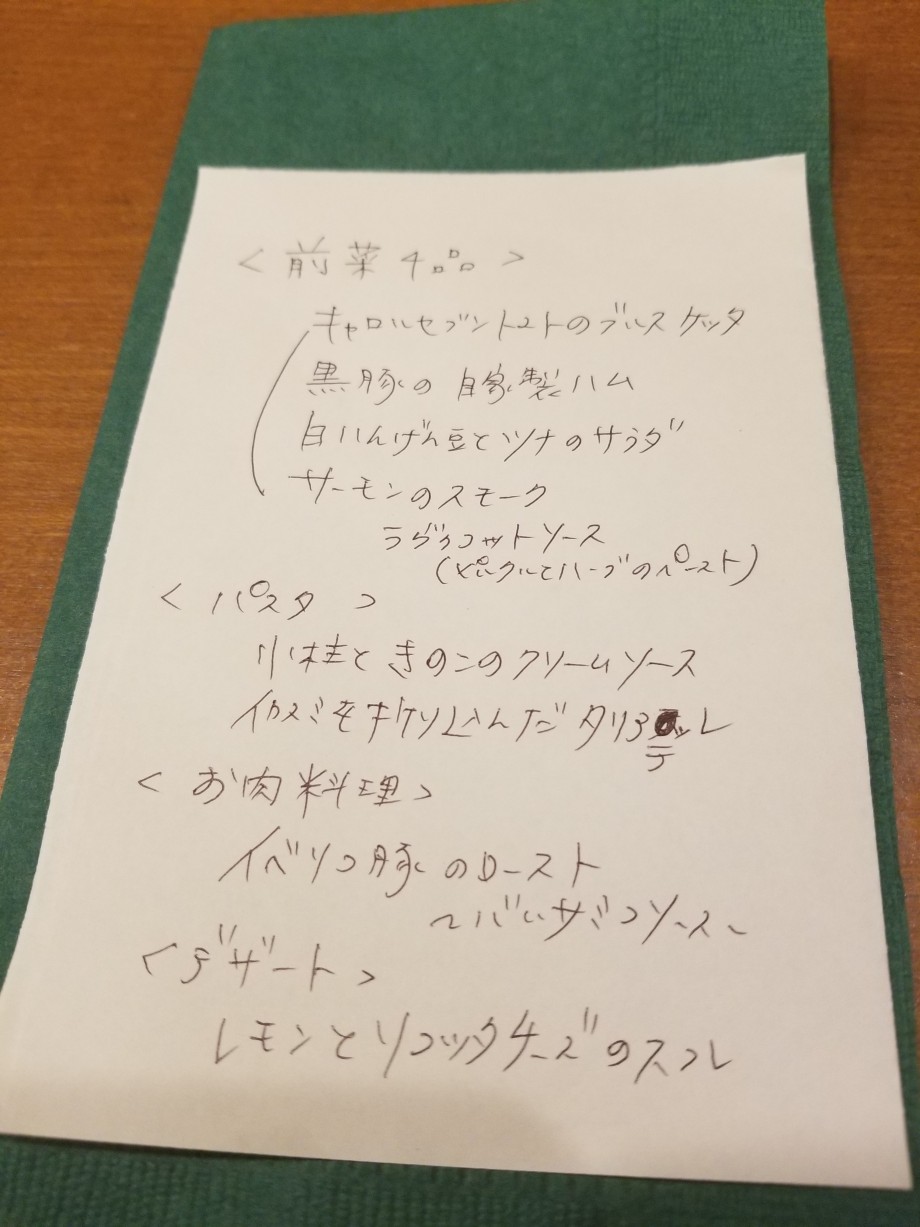 <前菜4品>
キャロルセブントマトのブルスケッタ
黒豚の自家製ハム
白いんげん豆とツナのサラダ
サーモンのスモーク
ラヴィゴットソース
(ピクルスとハーブのペースト)
<パスタ>
小柱ときのこのクリームソース
イカスミを打ち込んだタリアテッレ
<お肉料理>
イベリコ豚のロースト
〜バルサミコソース〜
<デザート>
レモンとリコッタチーズのスフレ